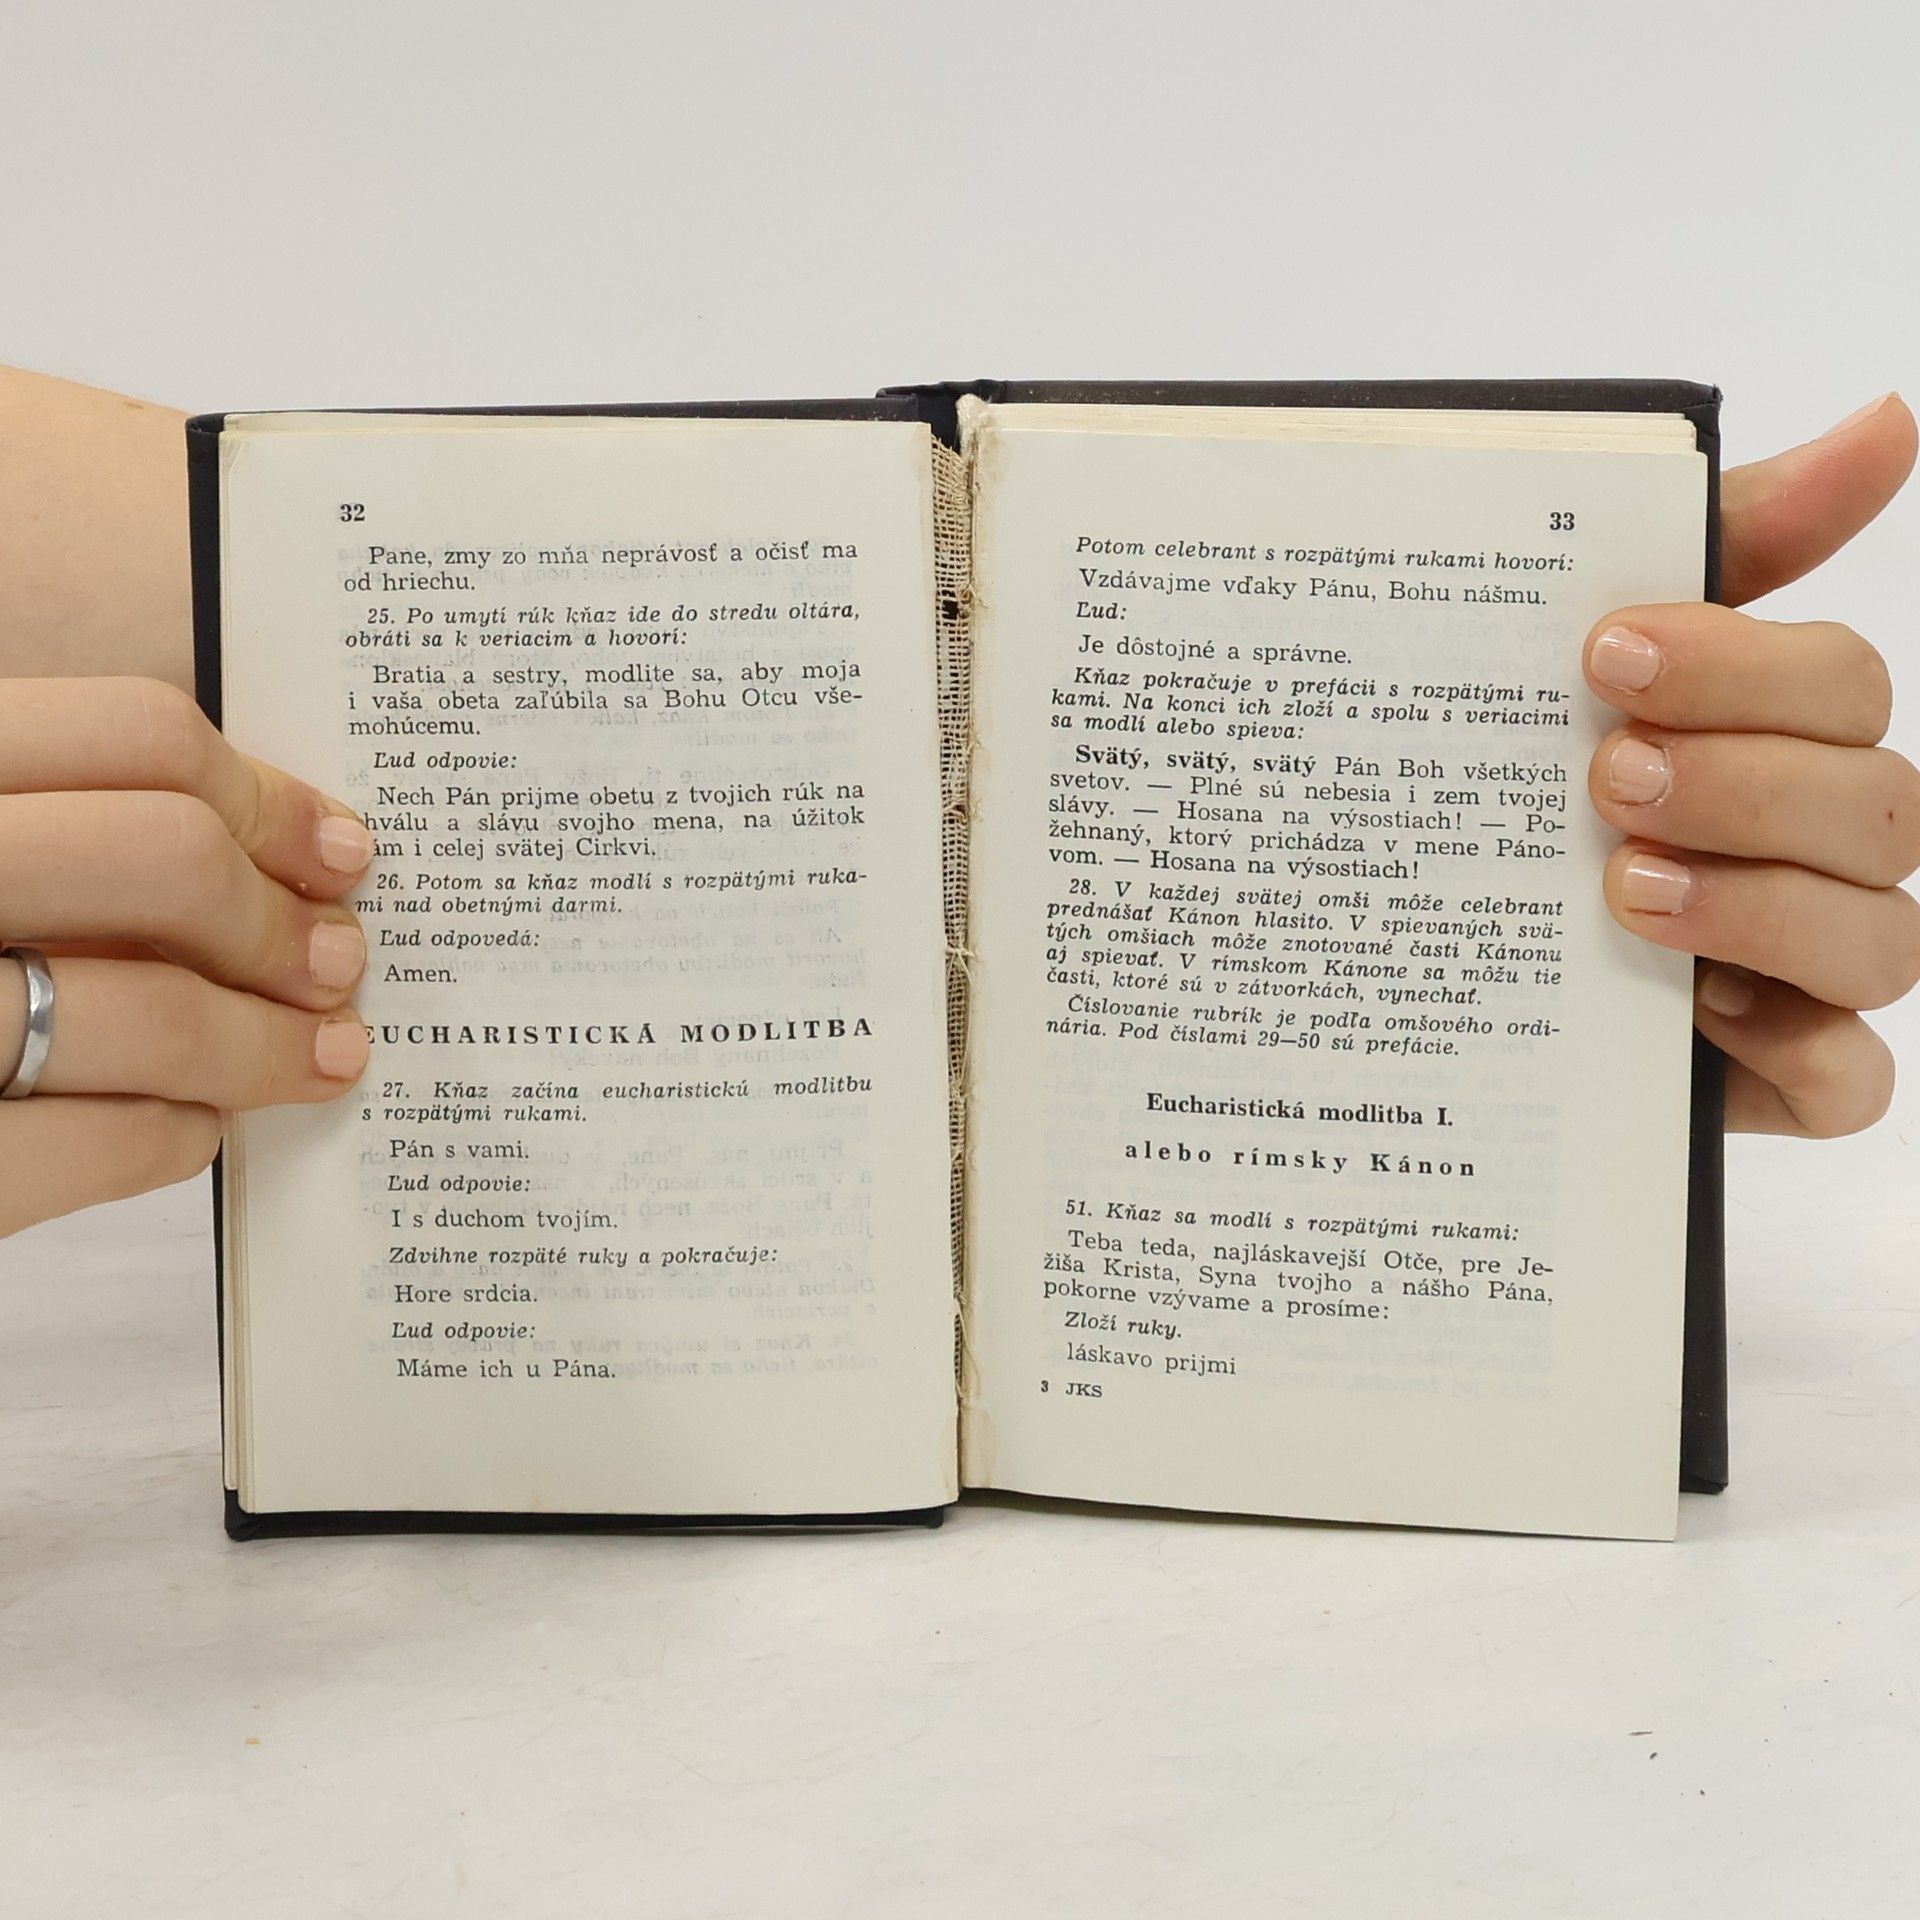 32
Pane, zmy zo mňa neprávosť a očisť ma
od hriechu.
25. Po umytí rúk kňaz ide do stredu oltára,
obráti sa k veriacim a hovorí:
Bratia a sestry, modlite sa, aby moja
i vaša obeta zaľúbila sa Bohu Otcu vše-
mohúcemu.
Ľud odpovie:
Nech Pán prijme obetu z tvojich rúk na
hválu a slávu svojho mena, na úžitok
ám i celej svätej Cirkvi.
26. Potom sa kňaz modlí s rozpätými ruka-
mi nad obetnými darmi.
Ľud odpovedá:
Amen.
EUCHARISTICKÁ MODLITBA
27. Kňaz začína eucharistickú modlitbu
s rozpätými rukami.
Pán s vami.
Ľud odpovie:
I s duchom tvojím.
Zdvihne rozpäté ruky a pokračuje:
Hore srdcia.
Ľud odpovie:
Máme ich u Pána.
33
Potom celebrant s rozpätými rukami hovorí:
Vzdávajme vďaky Pánu, Bohu nášmu.
Ľud:
Je dôstojné a správne.
Kňaz pokračuje v prefácii s rozpätými ru-
kami. Na konci ich zloží a spolu s veriacimi
sa modlí alebo spieva:
Svätý, svätý, svätý Pán Boh všetkých
svetov. — Plné sú nebesia i zem tvojej
slávy. — Hosana na výsostiach! — Po-
žehnaný, ktorý prichádza v mene Páno-
vom. — Hosana na výsostiach!
28. V každej svätej omši môže celebrant
prednášať Kánon hlasito. V spievaných svä-
tých omšiach môže znotované časti Kánonu
aj spievať. V rímskom Kánone sa môžu tie
časti, ktoré sú v zátvorkách, vynechať.
Číslovanie rubrík je podľa omšového ordi-
nária. Pod číslami 29—50 sú prefácie.
Eucharistická modlitba I.
alebo rímsky Kánon
51. Kňaz sa modlí s rozpätými rukami:
Teba teda, najláskavejší Otče, pre Je-
žiša Krista, Syna tvojho a nášho Pána,
pokorne vzývame a prosíme:
Zloží ruky.
láskavo prijmi
3 JKS